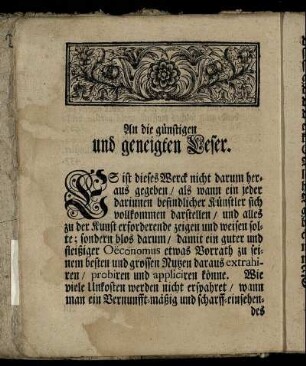 An die günstigen
und geneigten Leser.
ES ist dieses Werck nicht darum her-
aus gegeben / als wann ein jeder
darinnen befindlicher Künstler sich
vollkommen darstellen / und alles
zu der Kunst erforderende zeigen und weisen sol-
te: sondern blos darum / damit ein guter und
fleißiger Oeconomus etwas Vorrath zu sei-
nem besten und grossen Nutzen daraus extrahi-
ren / probiren und appliciren könne. Wie
viele Unkosten werden nicht erspahret / wann
man ein Vernunfft-mäßig und scharff-einsehen-
des